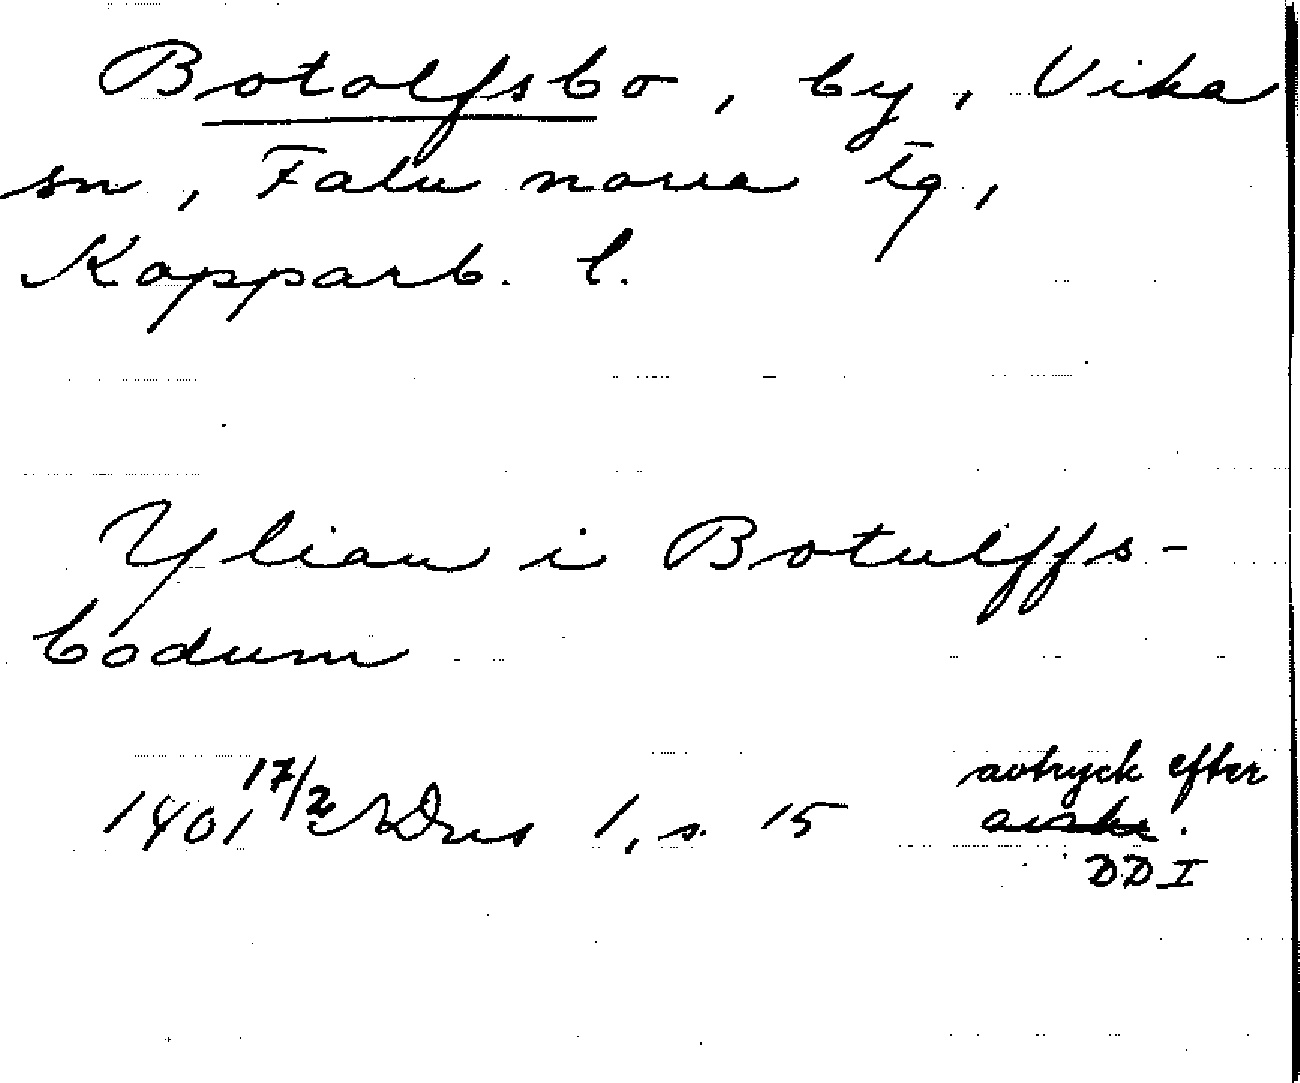 Botolfsbo, by, Vika
sn, Falu norra tg,
Kopparb. l.
Ylian i Botulffs-
bodum
1401 17/2 SDns 1, s. 15 avtryck efter
avskr.
DD I